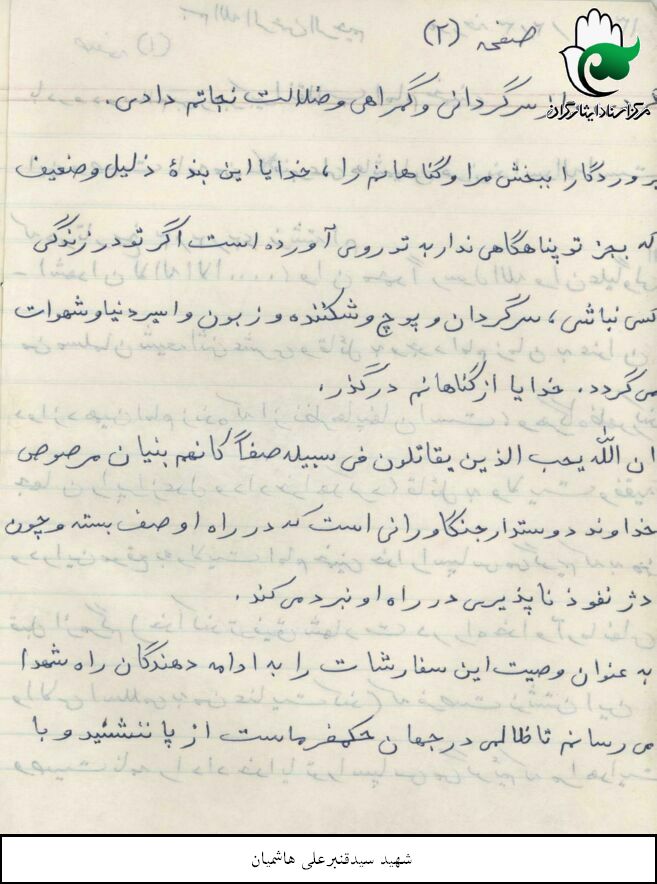 صفحه (۲)
مرکز اسناد ایثارگران
از سرگردانی و گمراهی و ضلالت نجاتم دادی.
پروردگارا ببخش مرا و گناهانم را، خدایا این بندهٔ ذلیل و ضعیف
که بجز تو پناهگاهی ندارد به تو روی آورده است اگر تو در زندگی
کسی نباشی، سرگردان و پوچ و شکننده و زبون و اسیر دنیا و شهوات
می گردد. خدایا از گناهانم درگذر.
ان الله یحب الذین یقاتلون فی سبیله صفاً کانهم بنیان مرصوص
خداوند دوستدار جنگاورانی است که در راه او صف بسته و چون
دژ نفوذ ناپذیری در راه او نبرد می کند.
به عنوان وصیت این سفارشات را به ادامه دهندگان راه شهدا
می رسانم تا ظالمی در جهان حکمفرماست از پا ننشئید و با
شهید سیدقنبرعلی هاشمیان